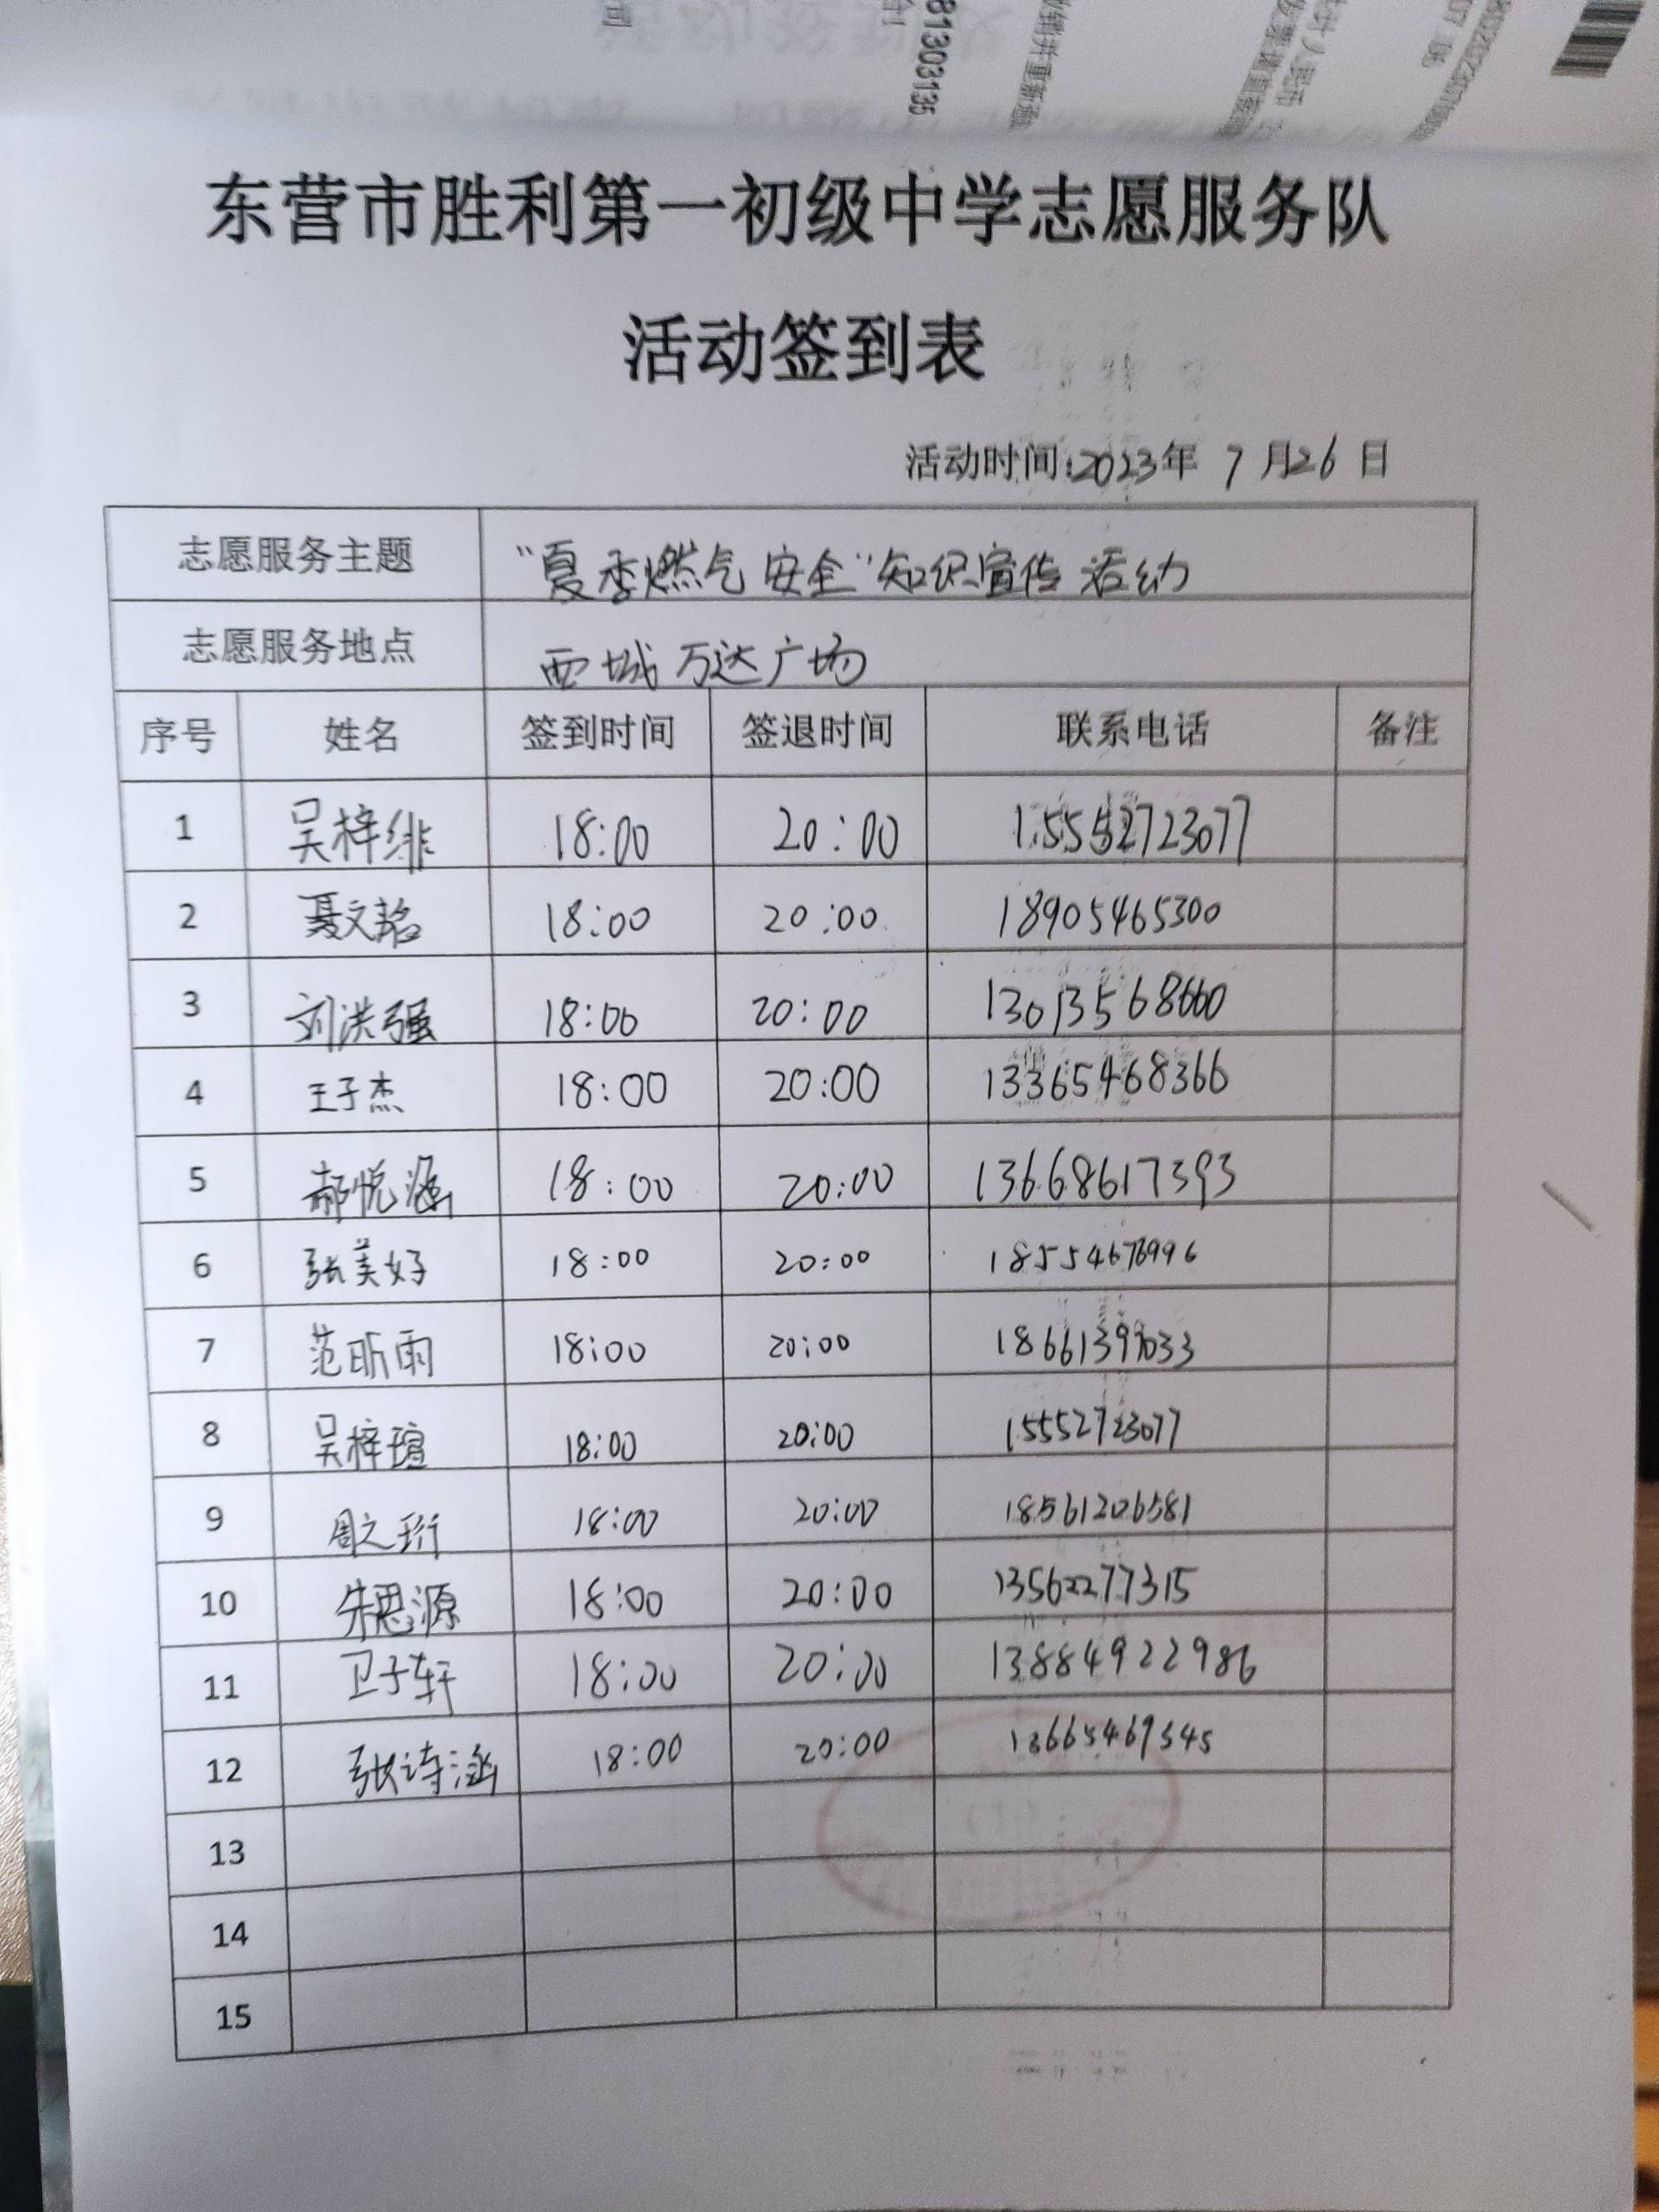 81303135
东营市胜利第一初级中学志愿服务队
活动签到表
活动时间:2023年 7 月26 日
志愿服务主题 "夏季燃气安全"知识宣传活动
志愿服务地点 西城万达广场
序号 姓名 签到时间 签退时间 联系电话 备注
1 吴梓绯 18:00 20:00 15552723077
2 聂文韬 18:00 20:00 18905465300
3 刘洪强 18:00 20:00 13013568660
4 王子杰 18:00 20:00 13365468366
5 郝悦涵 18:00 20:00 13668617393
6 张美好 18:00 20:00
7 范昕雨 18:00 20:00
8 吴梓瑄 18:00 20:00 15552723077
9 周之珩 18:00 20:00 18561206581
10 朱思源 18:00 20:00 13562277315
11 卫子轩 18:00 20:00 13884922986
12 张诗涵 18:00 20:00 13665469345
13
14
15